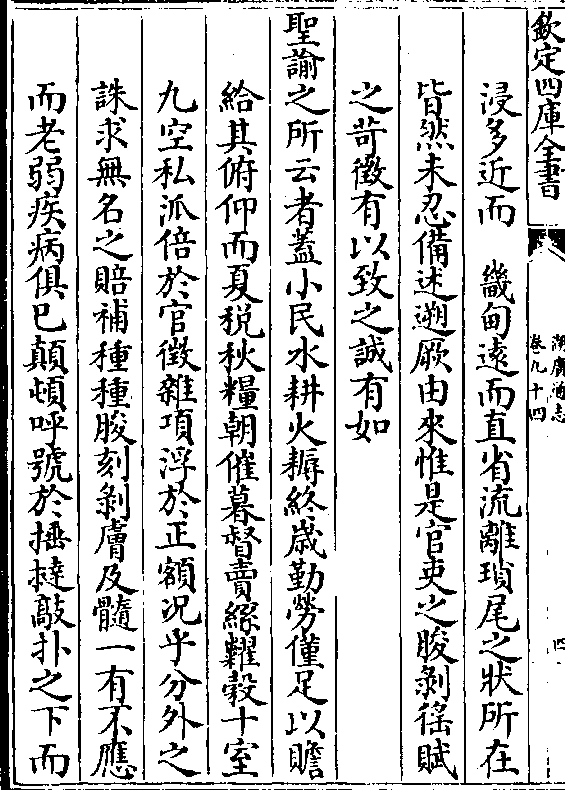 欽定四庫全書
湖廣通志
卷九十四
四
浸多近而　畿甸遠而直省流離瑣尾之狀所在
皆然未忍備述遡厥由來惟是官吏之朘剝徭賦
之苛徵有以致之誠有如
聖諭之所云者蓋小民水耕火耨終歲勤勞僅足以贍
給其俯仰而夏稅秋糧朝催暮督賣絲糶穀十室
九空私派倍於官徵雜項浮於正額况乎分外之
誅求無名之賠補種種朘刻剝膚及髓一有不應
而老弱疾病俱已顛頓呼號於捶撻敲扑之下而